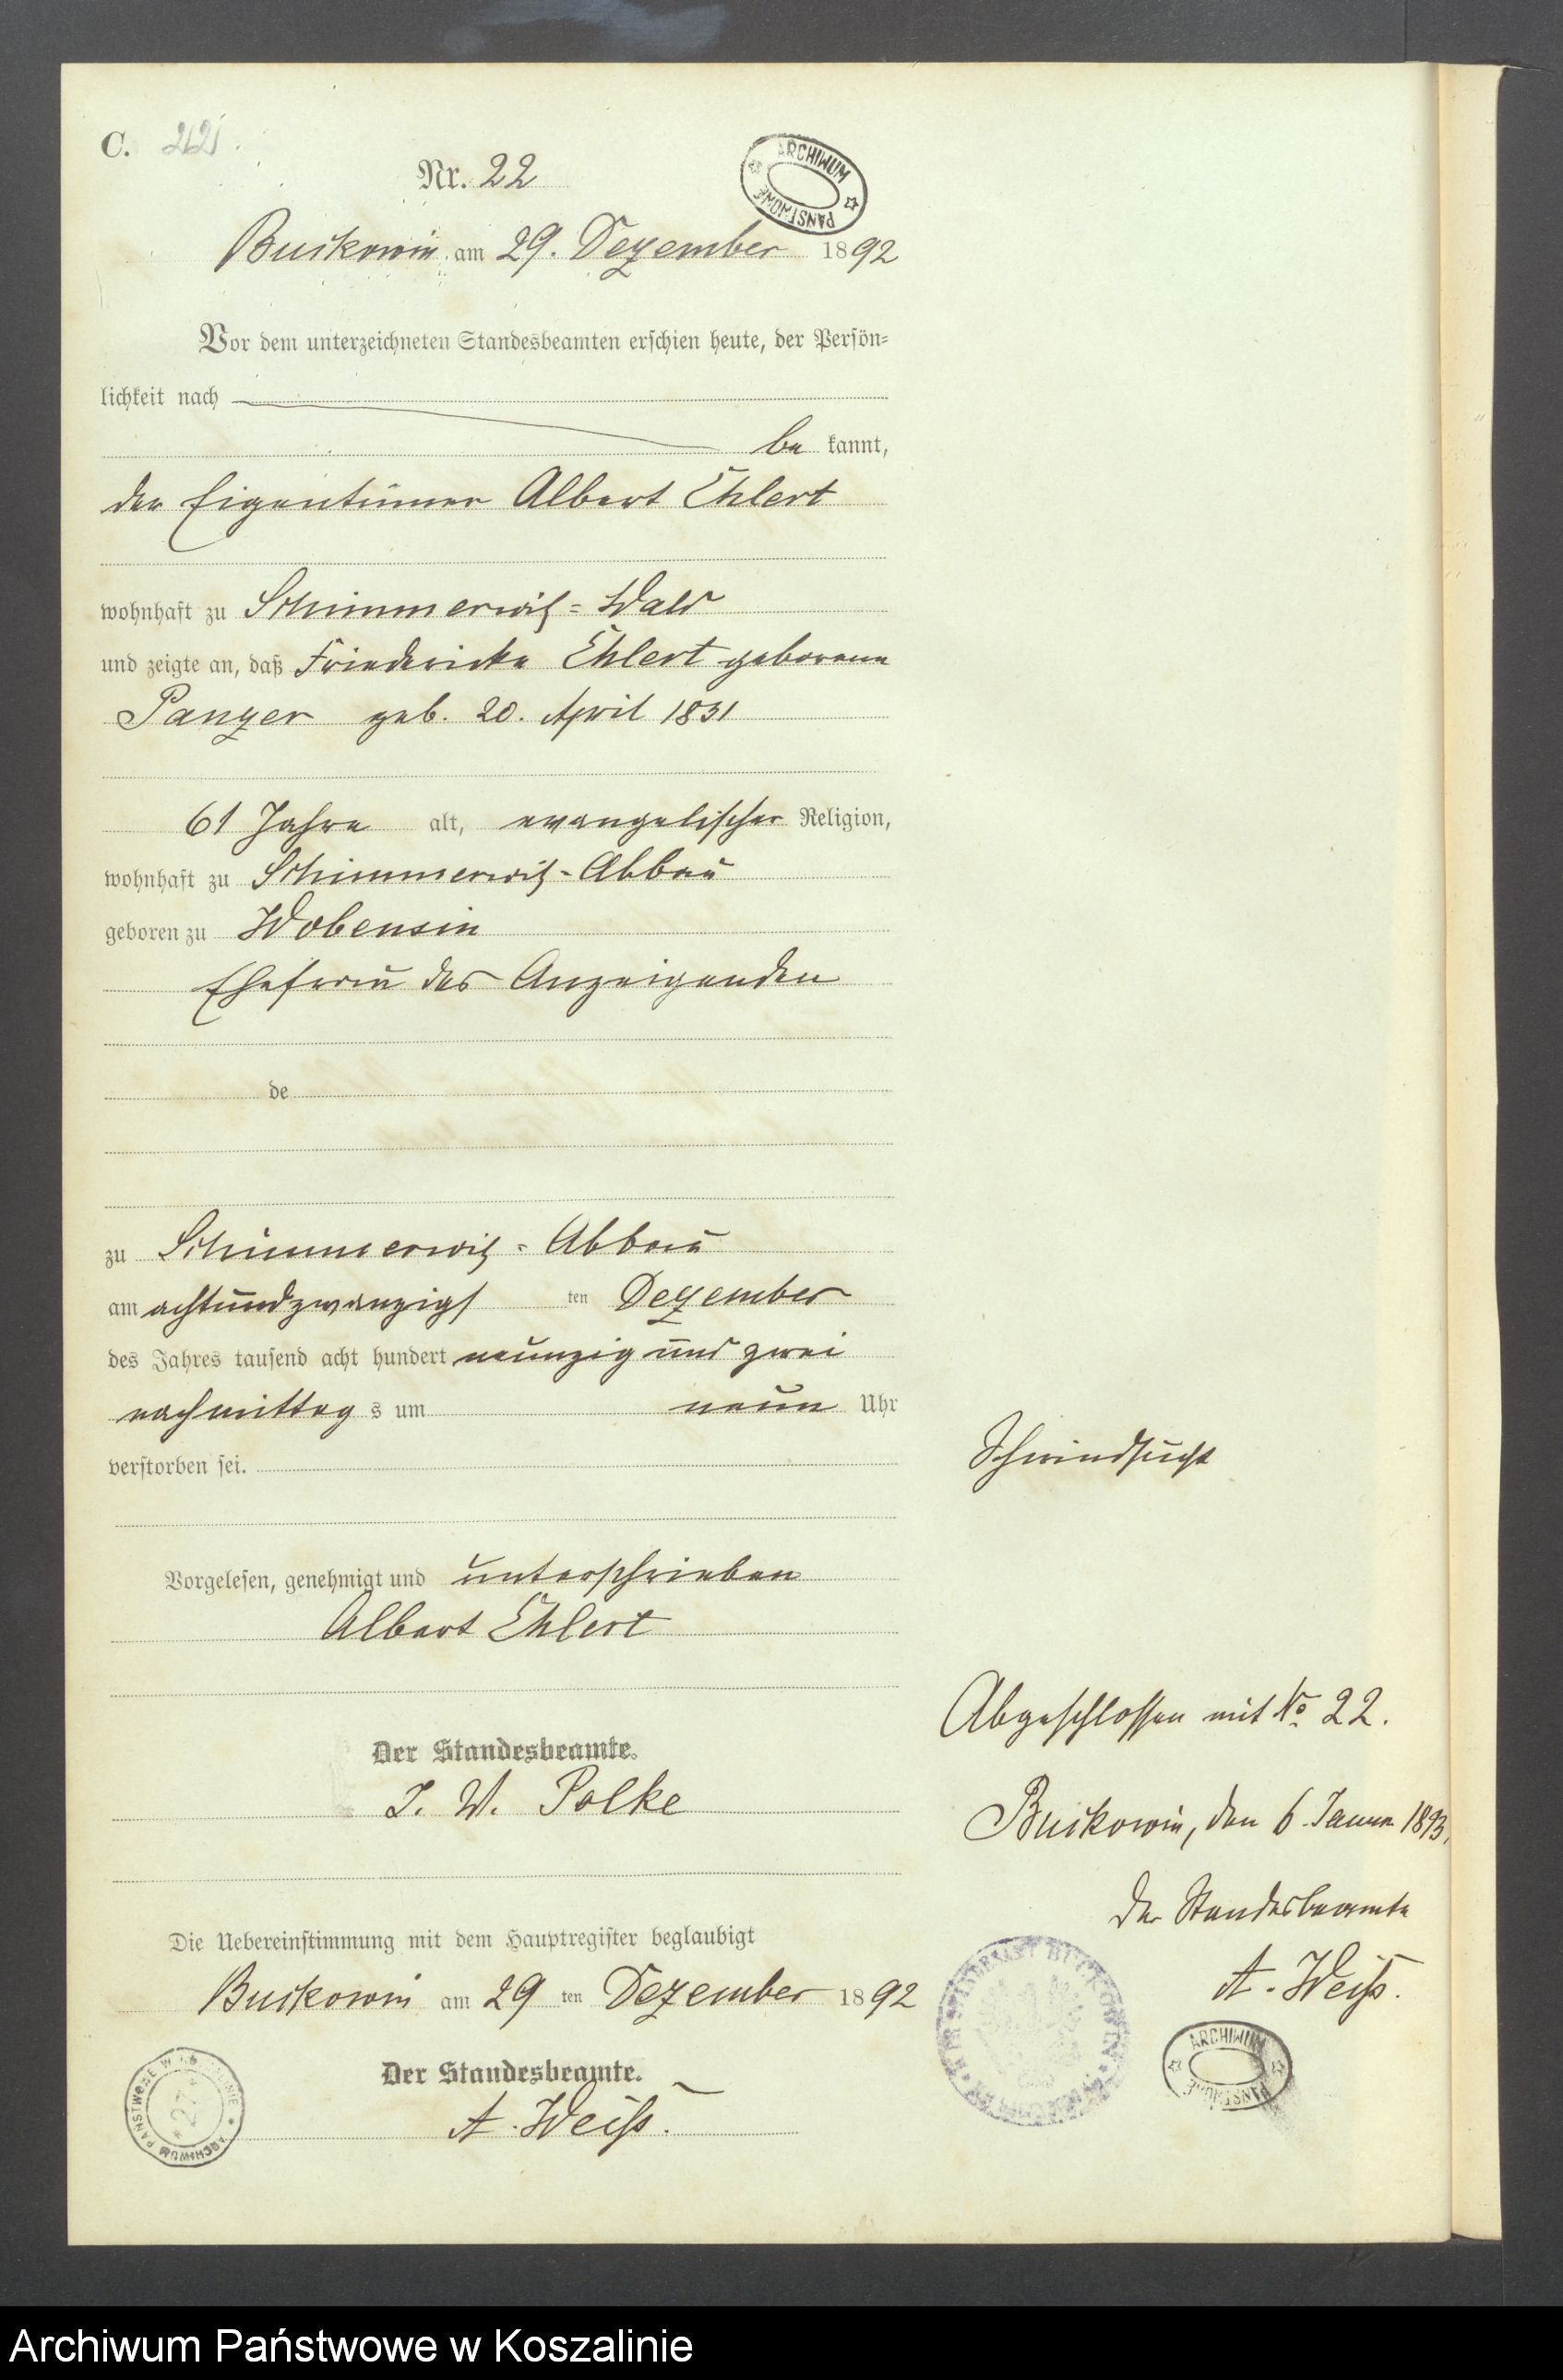 C.
Nr. 22
ARCHIWUM PAŃSTWOWE
Buckowin am 29. Dezember 1892
Vor dem unterzeichneten Standesbeamten erschien heute, der Persön-
lichkeit nach
be kannt,
der Eigentümer Albert Ehlert
wohnhaft zu Schimmerwitz-Wald
und zeigte an, daß Friedericke Ehlert geborene
Panzer geb. 20. April 1831
61 Jahre alt, evangelischer Religion,
wohnhaft zu Schimmerwitz-Abbau
geboren zu Wobensin
Ehefrau des Anzeigenden
de
zu Schimmerwitz-Abbau
am achtundzwanzigs ten Dezember
des Jahres tausend acht hundert neunzig und zwei
nachmittag s um neun Uhr
verstorben sei.
Schwindsucht
Vorgelesen, genehmigt und unterschrieben
Albert Ehlert
Der Standesbeamte.
I. V. Polke
Die Uebereinstimmung mit dem Hauptregister beglaubigt
Buckowin am 29 ten Dezember 1892
Der Standesbeamte.
A. Weiß.
Abgeschlossen mit No. 22.
Buckowin, den 6. Januar 1893.
Der Standesbeamte
A. Weiß.
ARCHIWUM PAŃSTWOWE
Archiwum Państwowe w Koszalinie